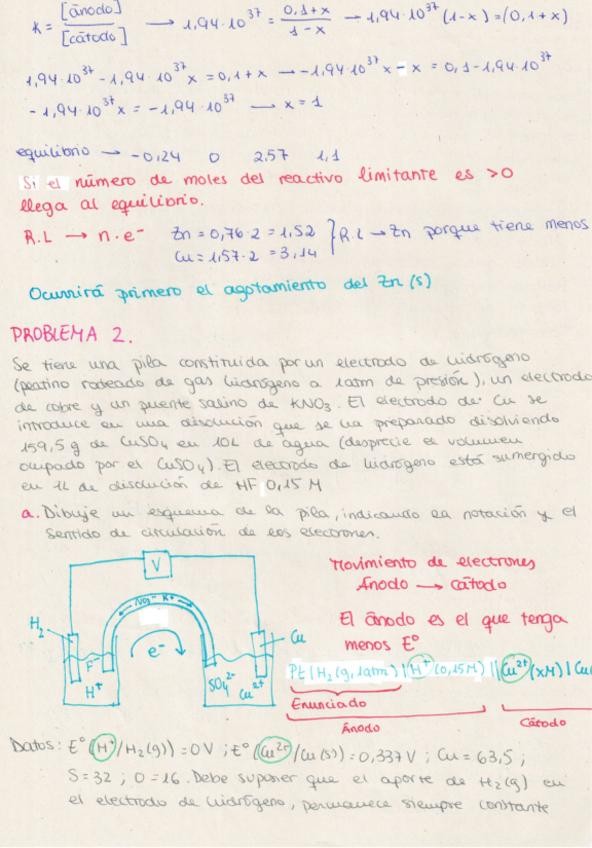 K = [ánodo]/[cátodo] → 1,94·10³⁷ = 0,1+x/1-x → 1,94·10³⁷ (1-x) = (0,1+x)
1,94·10³⁷ - 1,94·10³⁷x = 0,1+x → -1,94·10³⁷x - x = 0,1 - 1,94·10³⁷
-1,94·10³⁷x = -1,94·10³⁷ → x = 1
equilibrio → -0,24 0 2,57 1,1
Si el número de moles del reactivo limitante es >0
llega al equilibrio.
R.L → n.e⁻ Zn = 0,76·2 = 1,52 } R.L → Zn porque tiene menos
Cu = 1,57·2 = 3,14
Ocurrirá primero el agotamiento del Zn(s)
PROBLEMA 2.
Se tiene una pila constituida por un electrodo de hidrógeno
(platino rodeado de gas hidrógeno a 1atm de presión), un electrodo
de cobre y un puente salino de KNO₃. El electrodo de Cu se
introduce en una disolución que se ha preparado disolviendo
159,5 g de CuSO₄ en 10L de agua (desprecie el volumen
ocupado por el CuSO₄). El electrodo de hidrógeno está sumergido
en 1L de disolución de HF 0,15 M
a. Dibuje un esquema de la pila, indicando la notación y el
sentido de circulación de los electrones.
V
NO₃⁻ K⁺
H₂
Cu
F⁻
H⁺
e⁻
SO₄²⁻
Cu²⁺
Movimiento de electrones
Ánodo → Cátodo
El ánodo es el que tenga
menos E°
Pt | H₂(g, 1atm) | H⁺ (0,15M) || Cu²⁺ (xM) | Cu
Enunciado
Ánodo
Cátodo
Datos: E° (H⁺/H₂(g)) = 0V ; E° (Cu²⁺/Cu(s)) = 0,337V ; Cu = 63,5 ;
S = 32 ; O = 16. Debe suponer que el aporte de H₂(g) en
el electrodo de hidrógeno, permanece siempre constante